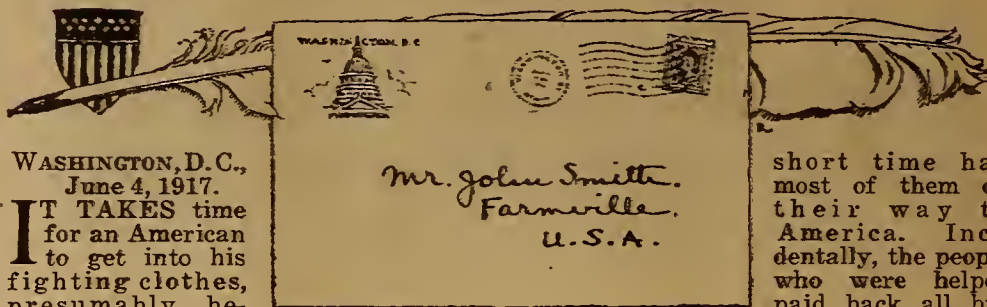 WASHINGTON, D.C.
Mr. John Smith.
Farmville.
U.S.A.
WASHINGTON, D. C.,
June 4, 1917.
IT TAKES time
for an American
to get into his
fighting clothes,
short time
most of them
their way
America.
dentally, the
who were
paid back all